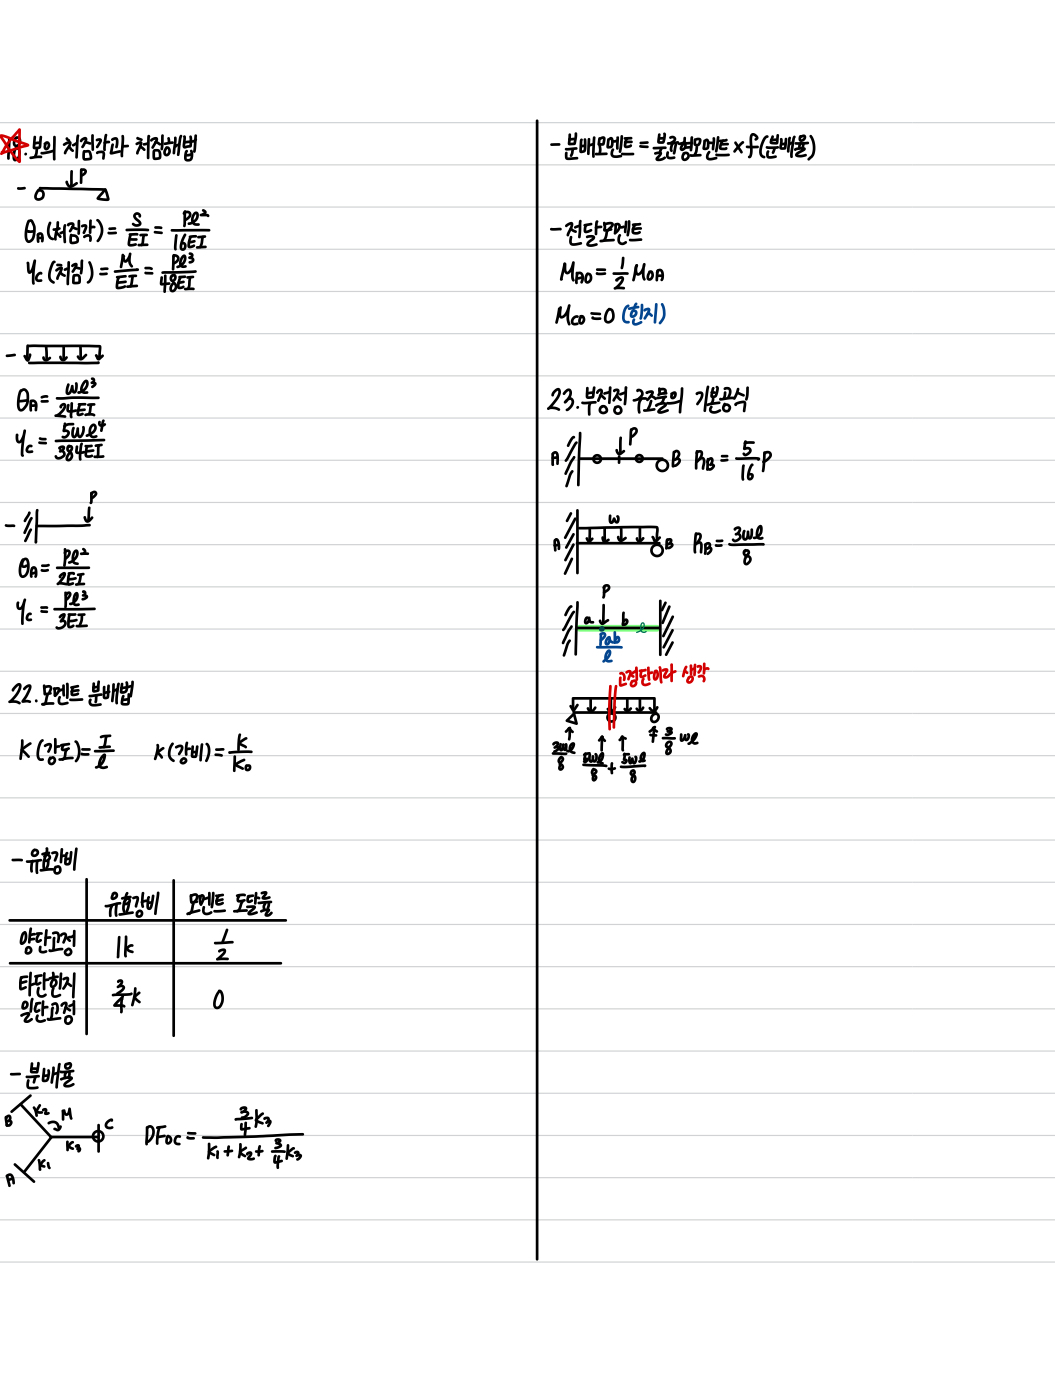 .보의 처짐각과 처짐해법
- P
θA(처짐각) = S/EI = Pl²/16EI
yc(처짐) = M/EI = Pl³/48EI
-
θA = wl³/24EI
yc = 5wl⁴/384EI
- P
θA = Pl²/2EI
yc = Pl³/3EI
22. 모멘트 분배법
K(강도) = I/l k(강비) = K/K₀
- 유효강비
유효강비 모멘트 도달률
양단고정 1k 1/2
타단힌지
일단고정 3/4k 0
- 분배율
B K₂ M C
K₃
A K₁
DFoc = 3/4k₃ / k₁+k₂+3/4k₃
- 분배모멘트 = 불균형모멘트 × f(분배율)
- 전달모멘트
MAO = 1/2 MOA
MCO = 0 (힌지)
23. 부정정 구조물의 기본공식
A P B RB = 5/16 P
A w B RB = 3wl/8
P
a b l
Pab/l
고정단이라 생각
3wl/8 5wl/8 + 5wl/8 3/8 wl